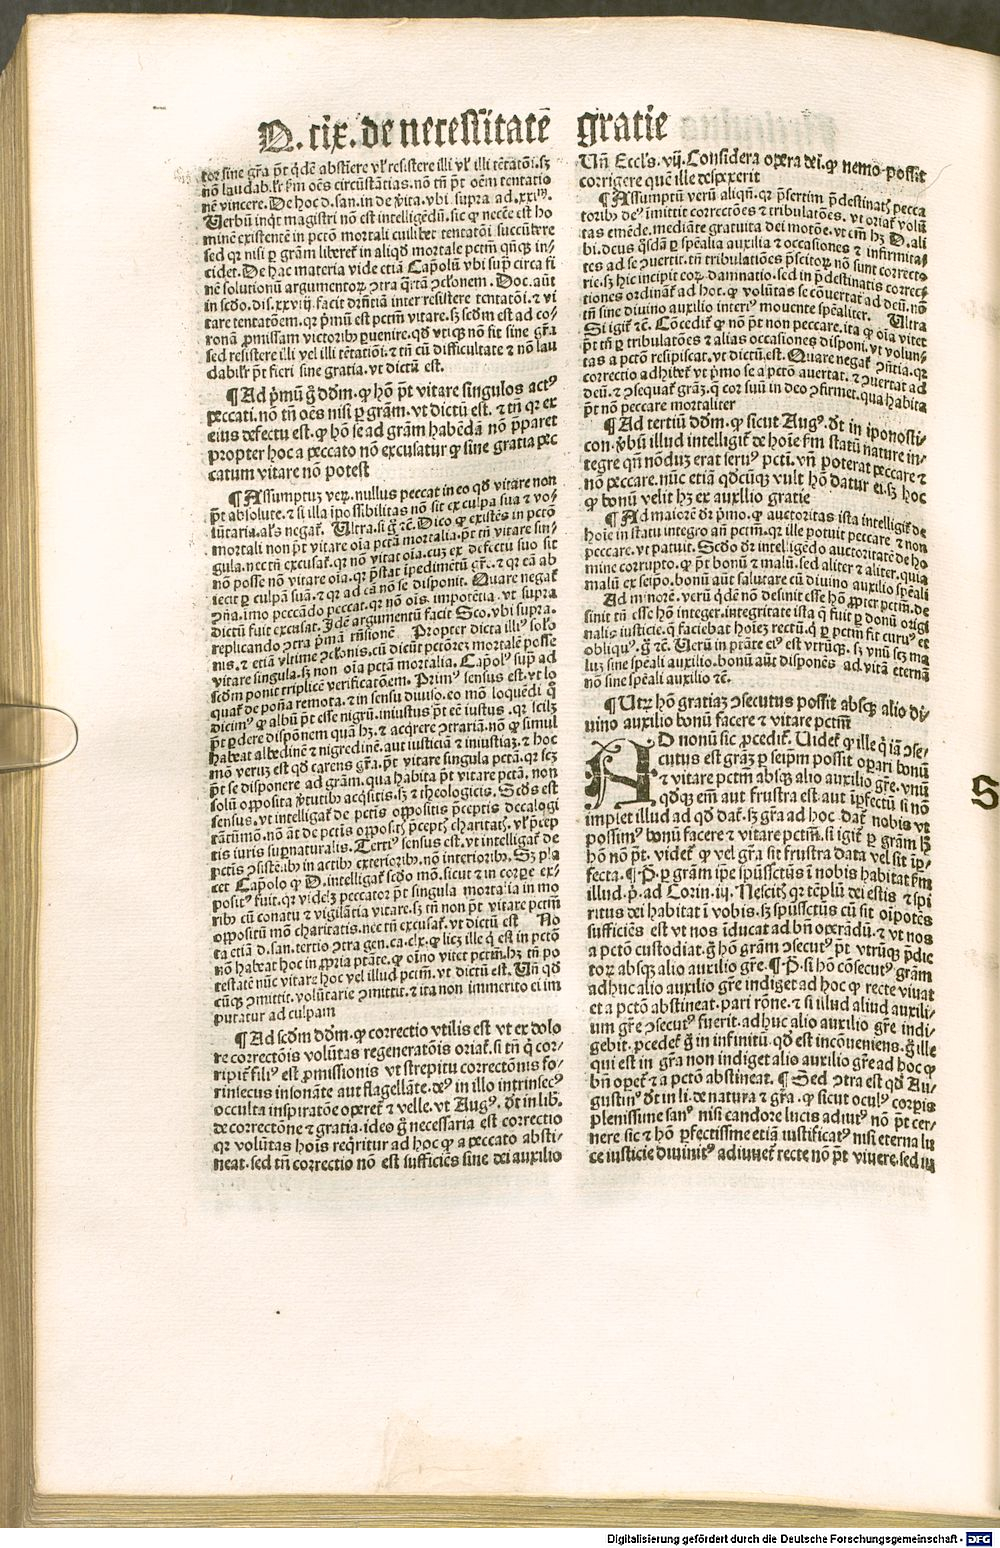 Q. cix. de necessitatē gratie
tor sine gr̄a p̄t q̇dē abstiere vl' resistere illi vl' illi tētatōi. sꝫ
nō laudab.lr ẜm oēs circūstātias. nō tn̄ p̄t oēm tentatio
nē vincere. De hoc d. san. in de v̓ita. vbi supra ad. xxiiᷓ.
Verbū inq̇t magistri nō est intelligēdū. sic ꝙ necēe est ho
minē existentē in pctō mortali cuilibet tentatōi succūbere
sed qꝛ nisi ꝑ gram liberet᷑ in aliqd̄ mortale pctm̄ qn̄qꝫ in-
cidet. De hac materia vide etiā Cap̄olū vbi sup̄ circa fi
nē solutionū argumentoꝝ ꝯtra q̄rtā ꝯclonem. Doc. aūt
in scd̄o. dis. xxviij. facit dr̄ntiā inter resistere tentatōi. ⁊ vi
tare tentatōem. qꝛ p̄mū est pctm̄ vitare. sꝫ scd̄m est ad co-
ronā ꝓmissam victoribꝰ ꝑuenire. qd̄ vtiqꝫ nō sit sine gr̄a
sed resistere illi vel illi tētatiōi. ⁊ tn̄ cū difficultate ⁊ nō lau
dabilr p̄t fieri sine gratia. vt dictū est.
¶ Ad p̄mū g̊ dd̄m. ꝙ hō p̄t vitare singulos actꝰ
peccati. nō tn̄ oēs nisi ꝑ grām. vt dictū est. ⁊ tn̄ qꝛ ex
eius defectu est. ꝙ hō se ad grām habēdā nō p̄paret
propter hoc a peccato nō excusatur ꝙ sine gratia pec
catum vitare nō potest
¶ Assumptuꝫ veꝝ. nullus peccat in eo qd̄ vitare non
p̄t absolute. ⁊ si illa ipossibilitas nō sit ex culpa sua ⁊ vo-
lūtaria. al's negat᷑. Vltra. si g̊ ⁊c̄. Dico ꝙ existēs in pctō
mortali non p̄t vitare oīa pctā mortalia. p̄t tn̄ vitare sin-
gula. nec tn̄ excusat᷑. qꝛ nō vitat oīa. cuꝫ ex defectu suo sit
nō posse nōn vitare oīa. qꝛ p̄stat īpedimētū gr̄e. ⁊ qꝛ eā ab
iecit ꝑ culpā suā. ⁊ qꝛ ad eā nō se disponit. Quare negat᷑
ꝯn̄a. imo peccādo peccat. qꝛ nō oīs impotētia. vt supra
dictū fuit excusat. Idē argumentū facit Sco. vbi supra.
replicando ꝯtra p̄mā rn̄sionē Propter dicta illiꝰ solo
nis. ⁊ etiā vltime ꝯclonis. cū dicūt pctōreꝫ mortalē posse
vitare singula. sꝫ non oīa pctā mortalia. Cap̄olꝰ sup̄ ad
scd̄m ponit triplicē verificatōem. Primꝰ sensus est. vt lo
quat᷑ de poīa remota. ⁊ in sensu diuiso. eo mō loquēdi q̇
dicimꝰ ꝙ albū p̄t esse nigrū. iniustus p̄t eē iustus. qꝛ scilꝫ
p̄t ꝑdere dispōnem quā hꝫ. ⁊ acq̇rere ꝯtrariā. nō ꝙ simul
habeat albedinē ⁊ nigredinē. aut iusticiā ⁊ iniustiaꝫ. ⁊ hoc
mō veruꝫ est qd̄ carens gr̄a. p̄t vitare singula pctā. qꝛ scꝫ
p̄t se disponere ad grām. qua habita p̄t vitare pctā. non
solū opposita v̓tutibꝰ acq̇sitis. sꝫ ⁊ theologicis. Scd̄s est
sensus. vt intelligat᷑ de pctīs oppositis p̄ceptis decalogi
tātūmō. nō āt de pctīs opposiꝭ p̄cepꝭ charitaꝭ. vl' p̄cep
tis iuris supnaturalis. Tertiꝰ sensus est. vt intelligat᷑ de
pctīs ꝯsistētibꝰ in actibꝰ exterioribꝰ. nō interioribꝰ. Sꝫ pla
cet Cap̄olo ꝙ D. intelligat᷑ scd̄o mō. sicut ⁊ in corꝑe ex-
positꝰ fuit. qꝛ videlꝫ peccator p̄t singula mortalia in mo
ribꝰ cū conatu ⁊ vigilātia vitare. sꝫ tn̄ non p̄t vitare pctm̄
oppositū mō charitatis. nec tn̄ excusat᷑. vt dictū est No
ta etiā D. san. tertio ꝯtra gen. ca. clx. ꝙ licꝫ ille q̇ est in pctō
nō habeat hoc in ꝓpria ptāte. ꝙ oīno vitet pctm̄. hꝫ tn̄ po
testatē nūc vitare hoc vel illud pctm̄. vt dictū est. Vn̄ qd̄
cūqꝫ ꝯmittit. volūtarie ꝯmittit. ⁊ ita non immerito ei im
putatur ad culpam
¶ Ad scd̄m dd̄m. ꝙ correctio vtilis est vt ex dolo
re correctōis volūtas regeneratōis oriat᷑. si tn̄ q̇ cor-
ripit᷑ filiꝰ est ꝓmissionis vt strepitu correctōnis fo-
rinsecus insonāte aut flagellāte. deꝰ in illo intrinsecꝰ
occulta inspiratōe operet᷑ ⁊ velle. vt Augꝰ. dt̄ in lib.
de correctōne ⁊ gratia. ideo g̊ necessaria est correctio
qꝛ volūtas hoīs req̇ritur ad hoc ꝙ a peccato absti-
neat. sed tn̄ correctio nō est sufficiēs sine dei auxilio
Vn̄ Eccl's. vij. Considera opera dei. ꝙ nemo possit
corrigere quē ille despexerit
¶ Assumptū verū aliqn̄. qꝛ p̄sertim p̄destinaꝭ pecca
toribꝰ deꝰ īmittit correctōes ⁊ tribulatōes. vt oriat᷑ volū
tas emēde. mediāte gratuita dei motōne. vt em̄ hꝫ D. ali
bi. deus q̇sdā ꝑ spēalia auxilia ⁊ occasiones ⁊ infirmita-
tes ad se ꝯuertit. tn̄ tribulatiōes p̄scitoꝝ nō sunt correcto
rie. sꝫ hic incipit eoꝝ damnatio. sed in p̄destinatis correc-
tiones ordināt᷑ ad hoc. ꝙ volūtas se cōuertat ad deū. nō
tn̄ sine diuino auxilio interiꝰ mouente spēaliter. Vltra
Si igit᷑ ⁊c̄. Cōcedit᷑ ꝙ nō p̄t non peccare. ita ꝙ oīa vitet
p̄t tn̄ ꝑ tribulatōes ⁊ alias occasiones disponi. vt volun-
tas a pctō resipiscat. vt dictū est. Quare negat᷑ ꝯn̄tia. qꝛ
correctio adhibet᷑ vt p̄mo se a pctō auertat. ⁊ ꝯuertat ad
deū. ⁊ ꝯsequat᷑ grāꝫ. q̄ cor suū in deo ꝯfirmet. qua habita
p̄t nō peccare mortaliter
¶ Ad tertiū dd̄m. ꝙ sicut Augꝰ. dt̄ in iponosti-
con. v̓bū illud intelligit᷑ de hoīe ẜm statū nature in-
tegre qn̄ nōduꝫ erat seruꝰ pctī. vn̄ poterat peccare ⁊
nō peccare. nūc etiā qd̄cūqꝫ vult hō datur ei. sꝫ hoc
ꝙ bonū velit hꝫ ex auxilio gratie
¶ Ad maiorē dr̄ p̄mo. ꝙ auctoritas ista intelligit᷑ de
hoīe in statu integro an̄ pctm̄. qꝛ ille potuit peccare ⁊ non
peccare. vt patuit. Scd̄o dr̄ intelligēdo auctoritatē de ho
mine corrupto. ꝙ p̄t bonū ⁊ malū. sed aliter ⁊ aliter. quia
malū ex seip̄o. bonū aūt salutare cū diuino auxilio spēali
Ad minorē. verū q̇dē nō desinit esse hō ꝓpter pctm̄. de
sinit tn̄ esse hō integer. integritate ista q̄ fuit ꝑ donū origi
nalis iusticie. q̄ faciebat hoīeꝫ rectū. q̇ ꝑ pctm̄ fit curuꝰ et
obliquꝰ. g̊ ⁊c̄. Verū in ptāte eiꝰ est vtrūqꝫ. sꝫ vnū scꝫ ma
luꝫ sine spēali auxilio. bonū aūt disponēs ad vitā eternā
nō sine spēali auxilio ⁊c̄.
¶ Vtꝝ hō gratiaꝫ ꝯsecutus possit absqꝫ alio di-
uino auxilio bonū facere ⁊ vitare pctm̄
AD nonū sic ꝓcedit᷑. Videt᷑ ꝙ ille q̇ iā ꝯse-
cutus est grāꝫ ꝑ seip̄m possit oꝑari bonū
⁊ vitare pctm̄ absqꝫ alio auxilio gr̄e. vnū
qd̄qꝫ em̄ aut frustra est aut īperfectū si nō
implet illud ad qd̄ dat᷑. sꝫ gr̄a ad hoc dat᷑ nobis vt
possimꝰ bonū facere ⁊ vitare pctm̄. si igit᷑ ꝑ grām hꝫ
hō nō p̄t. videt᷑ ꝙ vel gr̄a sit frustra data vel sit īꝑ-
fecta. ¶ P̄. ꝑ grām ip̄e sp̄ussctūs ī nobis habitat ẜm
illud. p̄. ad Corin. iij. Nesciꝭ qꝛ tēplū dei estis ⁊ spi
ritus dei habitat ī vobis. sꝫ sp̄ussctus cū sit oīpotēs
sufficiēs est vt nos īducat ad bn̄ operādū. ⁊ vt nos
a pctō custodiat. g̊ hō grām ꝯsecutꝰ p̄t vtrūqꝫ p̄dic
toꝝ absqꝫ alio auxilio gr̄e. ¶ P̄. si hō cōsecutꝰ grām
adhuc alio auxilio gr̄e indiget ad hoc ꝙ recte viuat
et a pctō abstineat. pari rōne. ⁊ si illud aliud auxili-
um gr̄e ꝯsecutꝰ fuerit. adhuc alio auxilio gr̄e indi-
gebit. ꝓcedet᷑ g̊ in infinitū. qd̄ est incōueniens. g̊ ille
qui est in gr̄a non indiget alio auxilio gr̄e ad hoc ꝙ
bn̄ oꝑet᷑ ⁊ a pctō abstineat. ¶ Sed ꝯtra est qd̄ Au-
gustinꝰ dt̄ in li. de natura ⁊ gr̄a. ꝙ sicut oculꝰ corꝑis
plenissime sanꝰ nisi candore lucis adiutꝰ nō p̄t cer-
nere sic ⁊ hō ꝑfectissime etiā iustificatꝰ nisi eterna lu
ce iusticie diuinitꝰ adiuuet᷑ recte nō p̄t viuere. sed iu
S
Digitalisierung gefördert durch die Deutsche Forschungsgemeinschaft - DFG